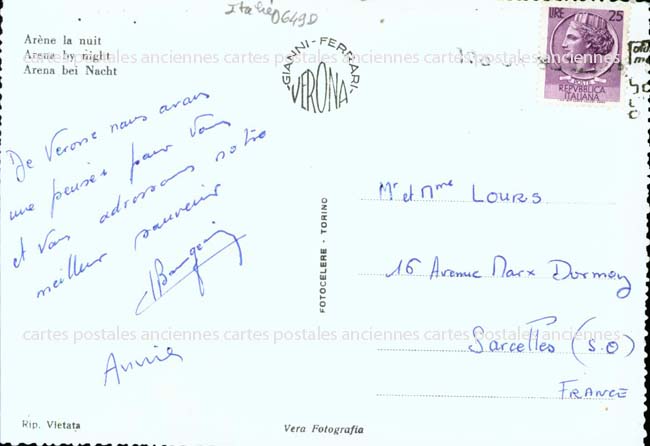 Italie 0649D
Arène la nuit
Arena by night
Arena bei Nacht
GIANNI-FERRARI
VERONA
LIRE 25
POSTE
REPVBBLICA
ITALIANA
cartes postales anciennes cartes postales anciennes cartes postales anciennes
De Verone nous avons
une pensée pour vous
et vous adressons notre
meilleur souvenir
Annie
FOTOCELERE - TORINO
Mr et Mme LOURS
16 Avenue Marx Dormoy
Sarcelles (S.O)
FRANCE
cartes postales anciennes cartes postales anciennes cartes postales anciennes
Rip. Vietata
Vera Fotografia